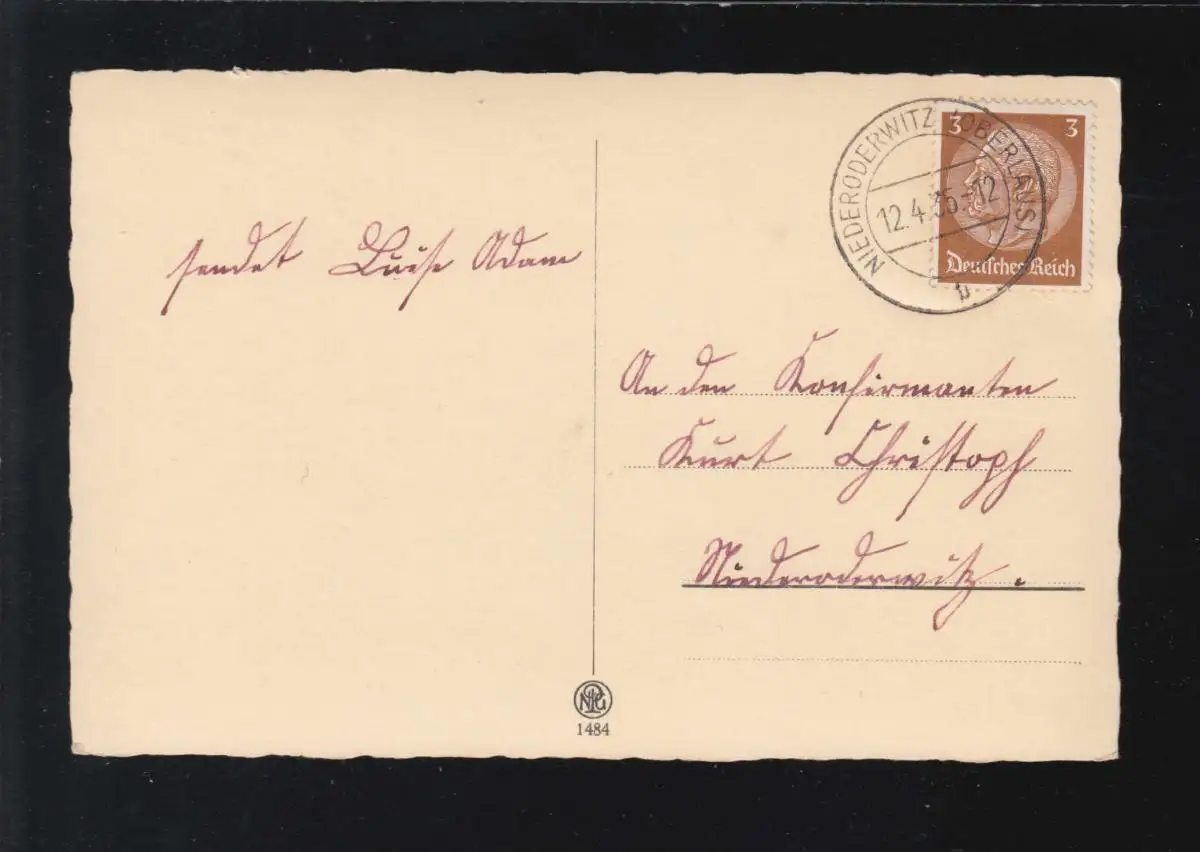 sendet Luise Adam
3 3
Deutsches Reich
NIEDERODERWITZ (OBERLAUS)
12.4.35.-12
b
An den Konfirmanten
Kurt Christoph
Niederoderwitz.
NPG
1484